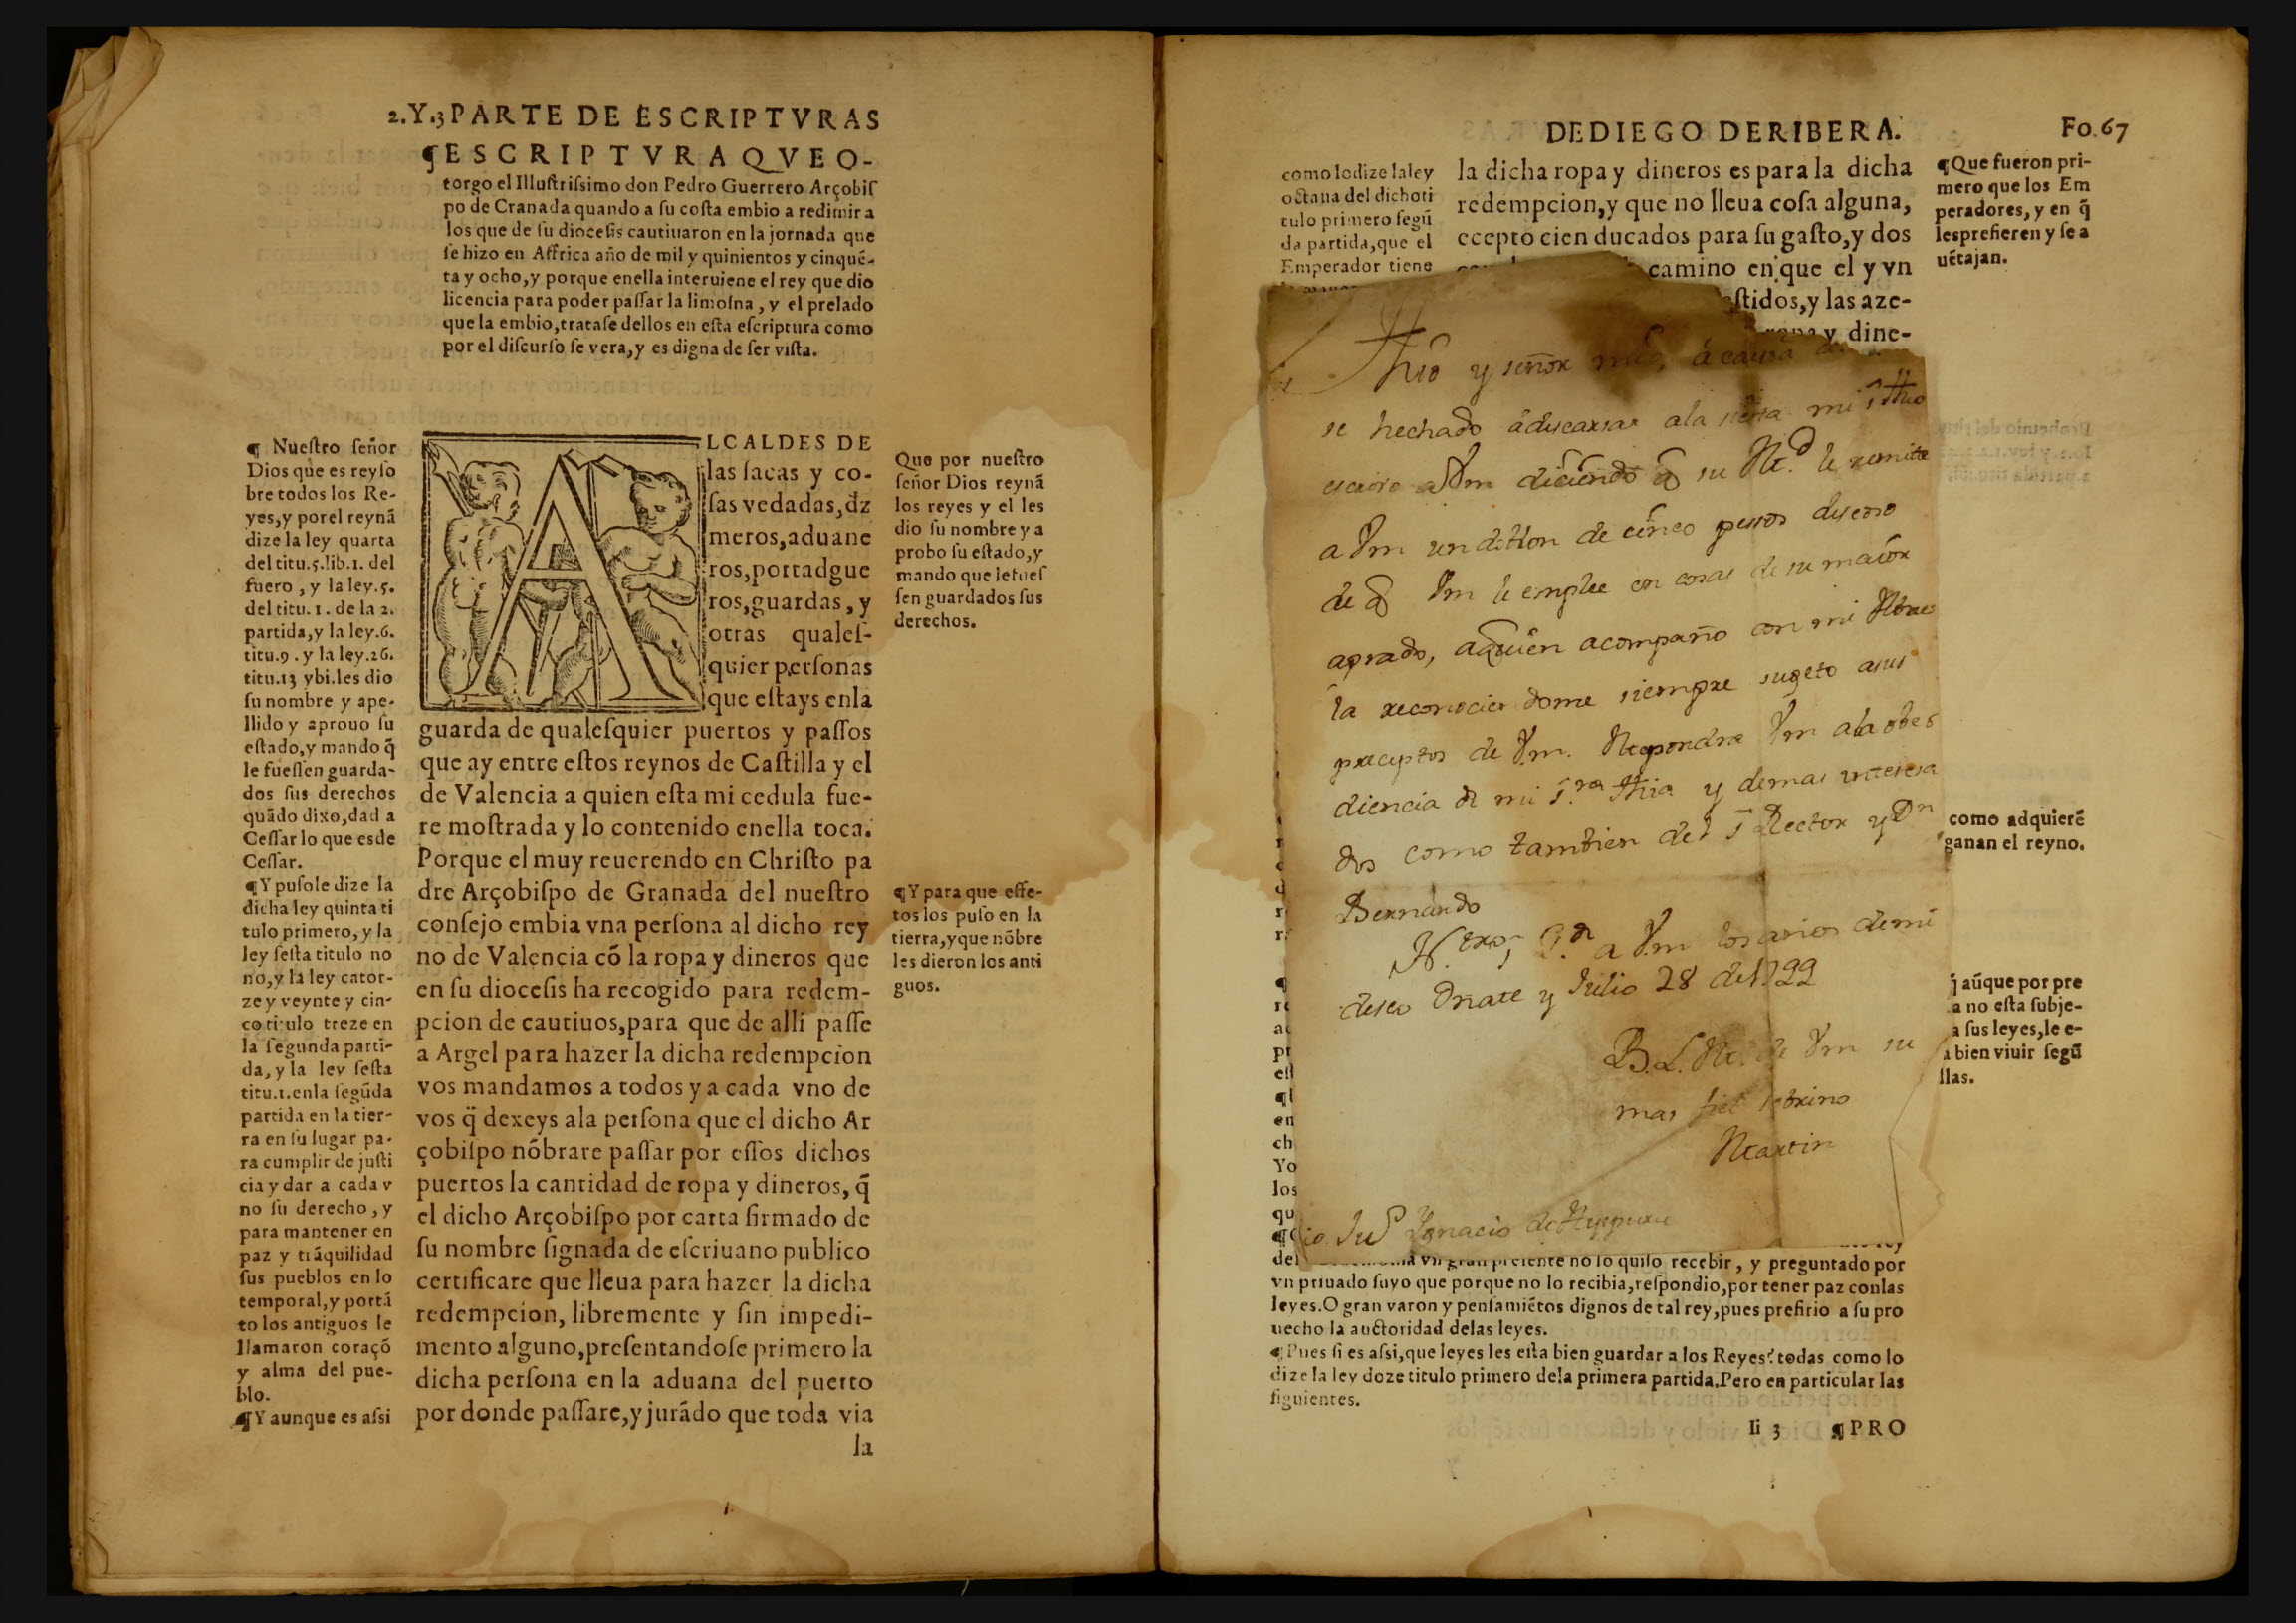 2.Y.3 PARTE DE ESCRIPTVRAS
¶ESCRIPTVRA QVE O-
torgo el Illuſtriſsimo don Pedro Guerrero Arçobiſ
po de Cranada quando a ſu coſta embio a redimir a
los que de ſu dioceſis cautiuaron en la jornada que
ſe hizo en Affrica año de mil y quinientos y cinquē-
ta y ocho, y porque enella interuiene el rey que dio
licencia para poder paſſar la limoſna, y el prelado
que la embio, trataſe dellos en eſta eſcriptura como
por el diſcurſo ſe vera, y es digna de ſer viſta.
¶ Nueſtro ſeñor
Dios que es rey ſo
bre todos los Re-
yes, y por el reynā
dize la ley quarta
del titu.5.lib.1. del
fuero, y la ley.5.
del titu. 1. de la 2.
partida, y la ley.6.
titu.9. y la ley.26.
titu.13 ybi.les dio
ſu nombre y ape-
llido y aprouo ſu
eſtado, y mando q̄
le fueſſen guarda-
dos ſus derechos
quādo dixo, dad a
Ceſſar lo que es de
Ceſſar.
¶Y puſole dize la
dicha ley quinta ti
tulo primero, y la
ley ſeſta titulo no
no, y la ley cator-
ze y veynte y cin-
co titulo treze en
la ſegunda parti-
da, y la ley ſeſta
titu.1.enla ſegūda
partida en la tier-
ra en ſu lugar pa-
ra cumplir de juſti
cia y dar a cada v
no ſu derecho, y
para mantener en
paz y trāquilidad
ſus pueblos en lo
temporal, y portā
to los antiguos le
llamaron coraçō
y alma del pue-
blo.
¶Y aunque es aſsi
ALCALDES DE
las ſacas y co-
ſas vedadas, dz
meros, aduane
ros, portadgue
ros, guardas, y
otras qualeſ-
quier perſonas
que eſtays enla
guarda de qualeſquier puertos y paſſos
que ay entre eſtos reynos de Caſtilla y el
de Valencia a quien eſta mi cedula fue-
re moſtrada y lo contenido enella toca.
Porque el muy reuerendo en Chriſto pa
dre Arçobiſpo de Granada del nueſtro
conſejo embia vna perſona al dicho rey
no de Valencia cō la ropa y dineros que
en ſu dioceſis ha recogido para redem-
pcion de cautiuos, para que de alli paſſe
a Argel para hazer la dicha redempcion
vos mandamos a todos y a cada vno de
vos q̄ dexeys ala perſona que el dicho Ar
çobiſpo nōbrare paſſar por eſſos dichos
puertos la cantidad de ropa y dineros, q̄
el dicho Arçobiſpo por carta firmado de
ſu nombre ſignada de eſcriuano publico
certificare que lleua para hazer la dicha
redempcion, libremente y ſin impedi-
mento alguno, preſentandoſe primero la
dicha perſona en la aduana del puerto
por donde paſſare, y jurādo que toda via
la
Que por nueſtro
ſeñor Dios reynā
los reyes y el les
dio ſu nombre y a
probo ſu eſtado, y
mando que lefueſ
ſen guardados ſus
derechos.
¶Y para que effe-
tos los puſo en la
tierra, y que nōbre
les dieron los anti
guos.
DE DIEGO DE RIBERA.
Fo.67
como lo dize la ley
octaua del dicho ti
tulo primero ſegū
da partida, que el
Emperador tiene
la dicha ropa y dineros es para la dicha
redempcion, y que no lleua coſa alguna,
ecepto cien ducados para ſu gaſto, y dos
camino en que el y vn
eſtidos, y las aze-
ropa y dine-
¶Que fueron pri-
mero que los Em
peradores, y en q̄
les prefieren y ſe a
uētajan.
thio y señor mio, á causa de
se hechado á descansar ala siesta mi sr. thio
escrivo a Vm diciendo q su Md. le remite
a Vm un doblon de cinco pesos deseoso
de q Vm le emplee en cosas de su maior
agrado, aquien acompaño con mi
la reconociendome siempre sugeto asus
preceptos de Vm. Respondra Vm ala obe
diencia de mi s.ra thia y demas interesa
dos como tambien del sr Rector y Dn
Bernardo
a Vm los años de mi
deseo Oñate y Julio 28 de 1799
B. L. M. de Vm su
mas fiel sobrino
Martin
Ignacio de
como adquierē
ganan el reyno.
aūque por pre
a no eſta ſubje-
a ſus leyes, le e-
bien viuir ſegū
llas.
vn gran preſente no lo quiſo recebir, y preguntado por
vn priuado ſuyo que porque no lo recibia, reſpondio, por tener paz con las
leyes. O gran varon y penſamiētos dignos de tal rey, pues prefirio a ſu pro
uecho la auctoridad delas leyes.
¶Pues ſi es aſsi, que leyes les eſta bien guardar a los Reyes? todas como lo
dize la ley doze titulo primero dela primera partida. Pero en particular las
ſiguientes.
Ii 3 ¶PRO